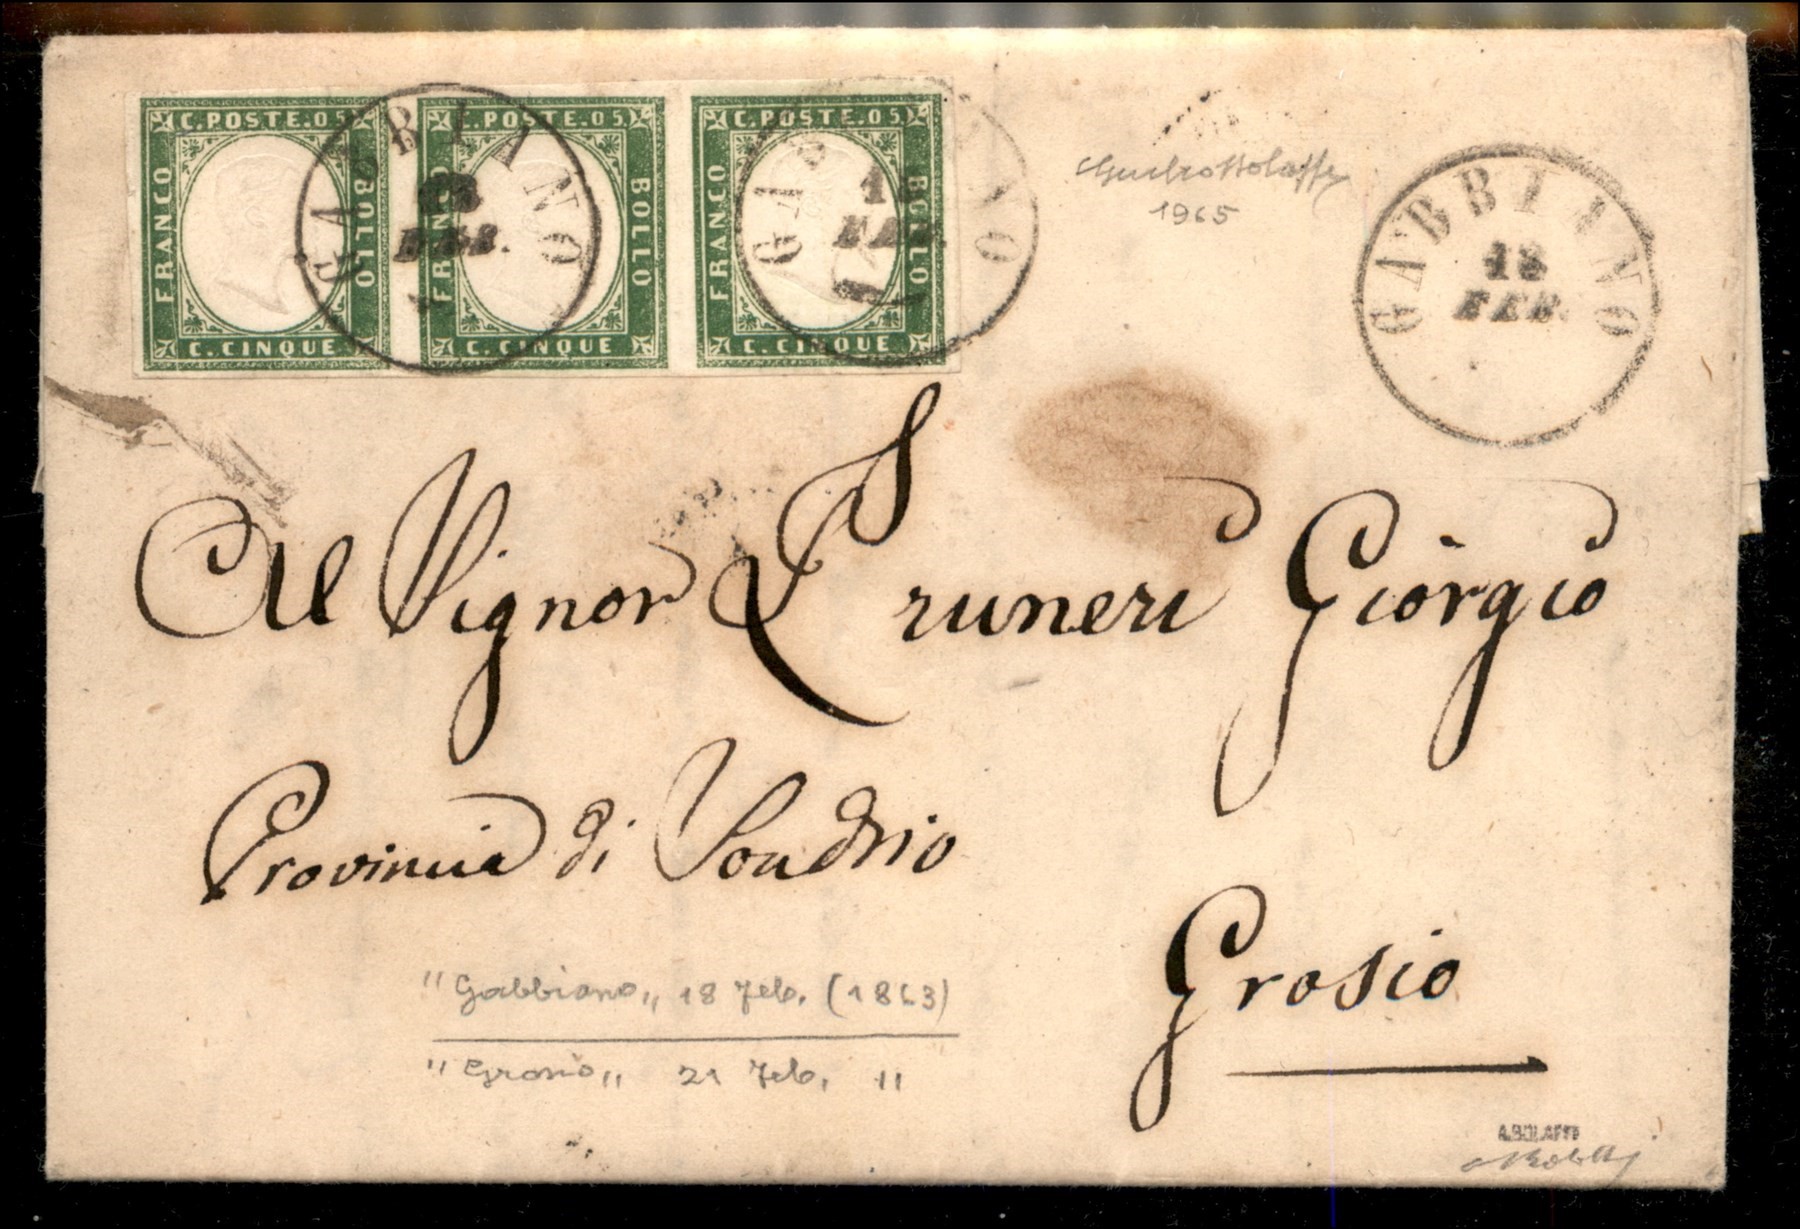 C. POSTE. 05
FRANCO
BOLLO
C. CINQUE
C. POSTE. 05
FRANCO
BOLLO
C. CINQUE
C. POSTE. 05
FRANCO
BOLLO
C. CINQUE
GABBIANO
18
FEB.
GAB NO
18
FEB.
1965
GABBIANO
18
FEB.
Al Signor Pruneri Giorgio
Provincia di Sondrio
Grosio
"Gabbiano" 18 Feb. (1863)
"Grosio" 21 Feb. "
A.BOLAFFI